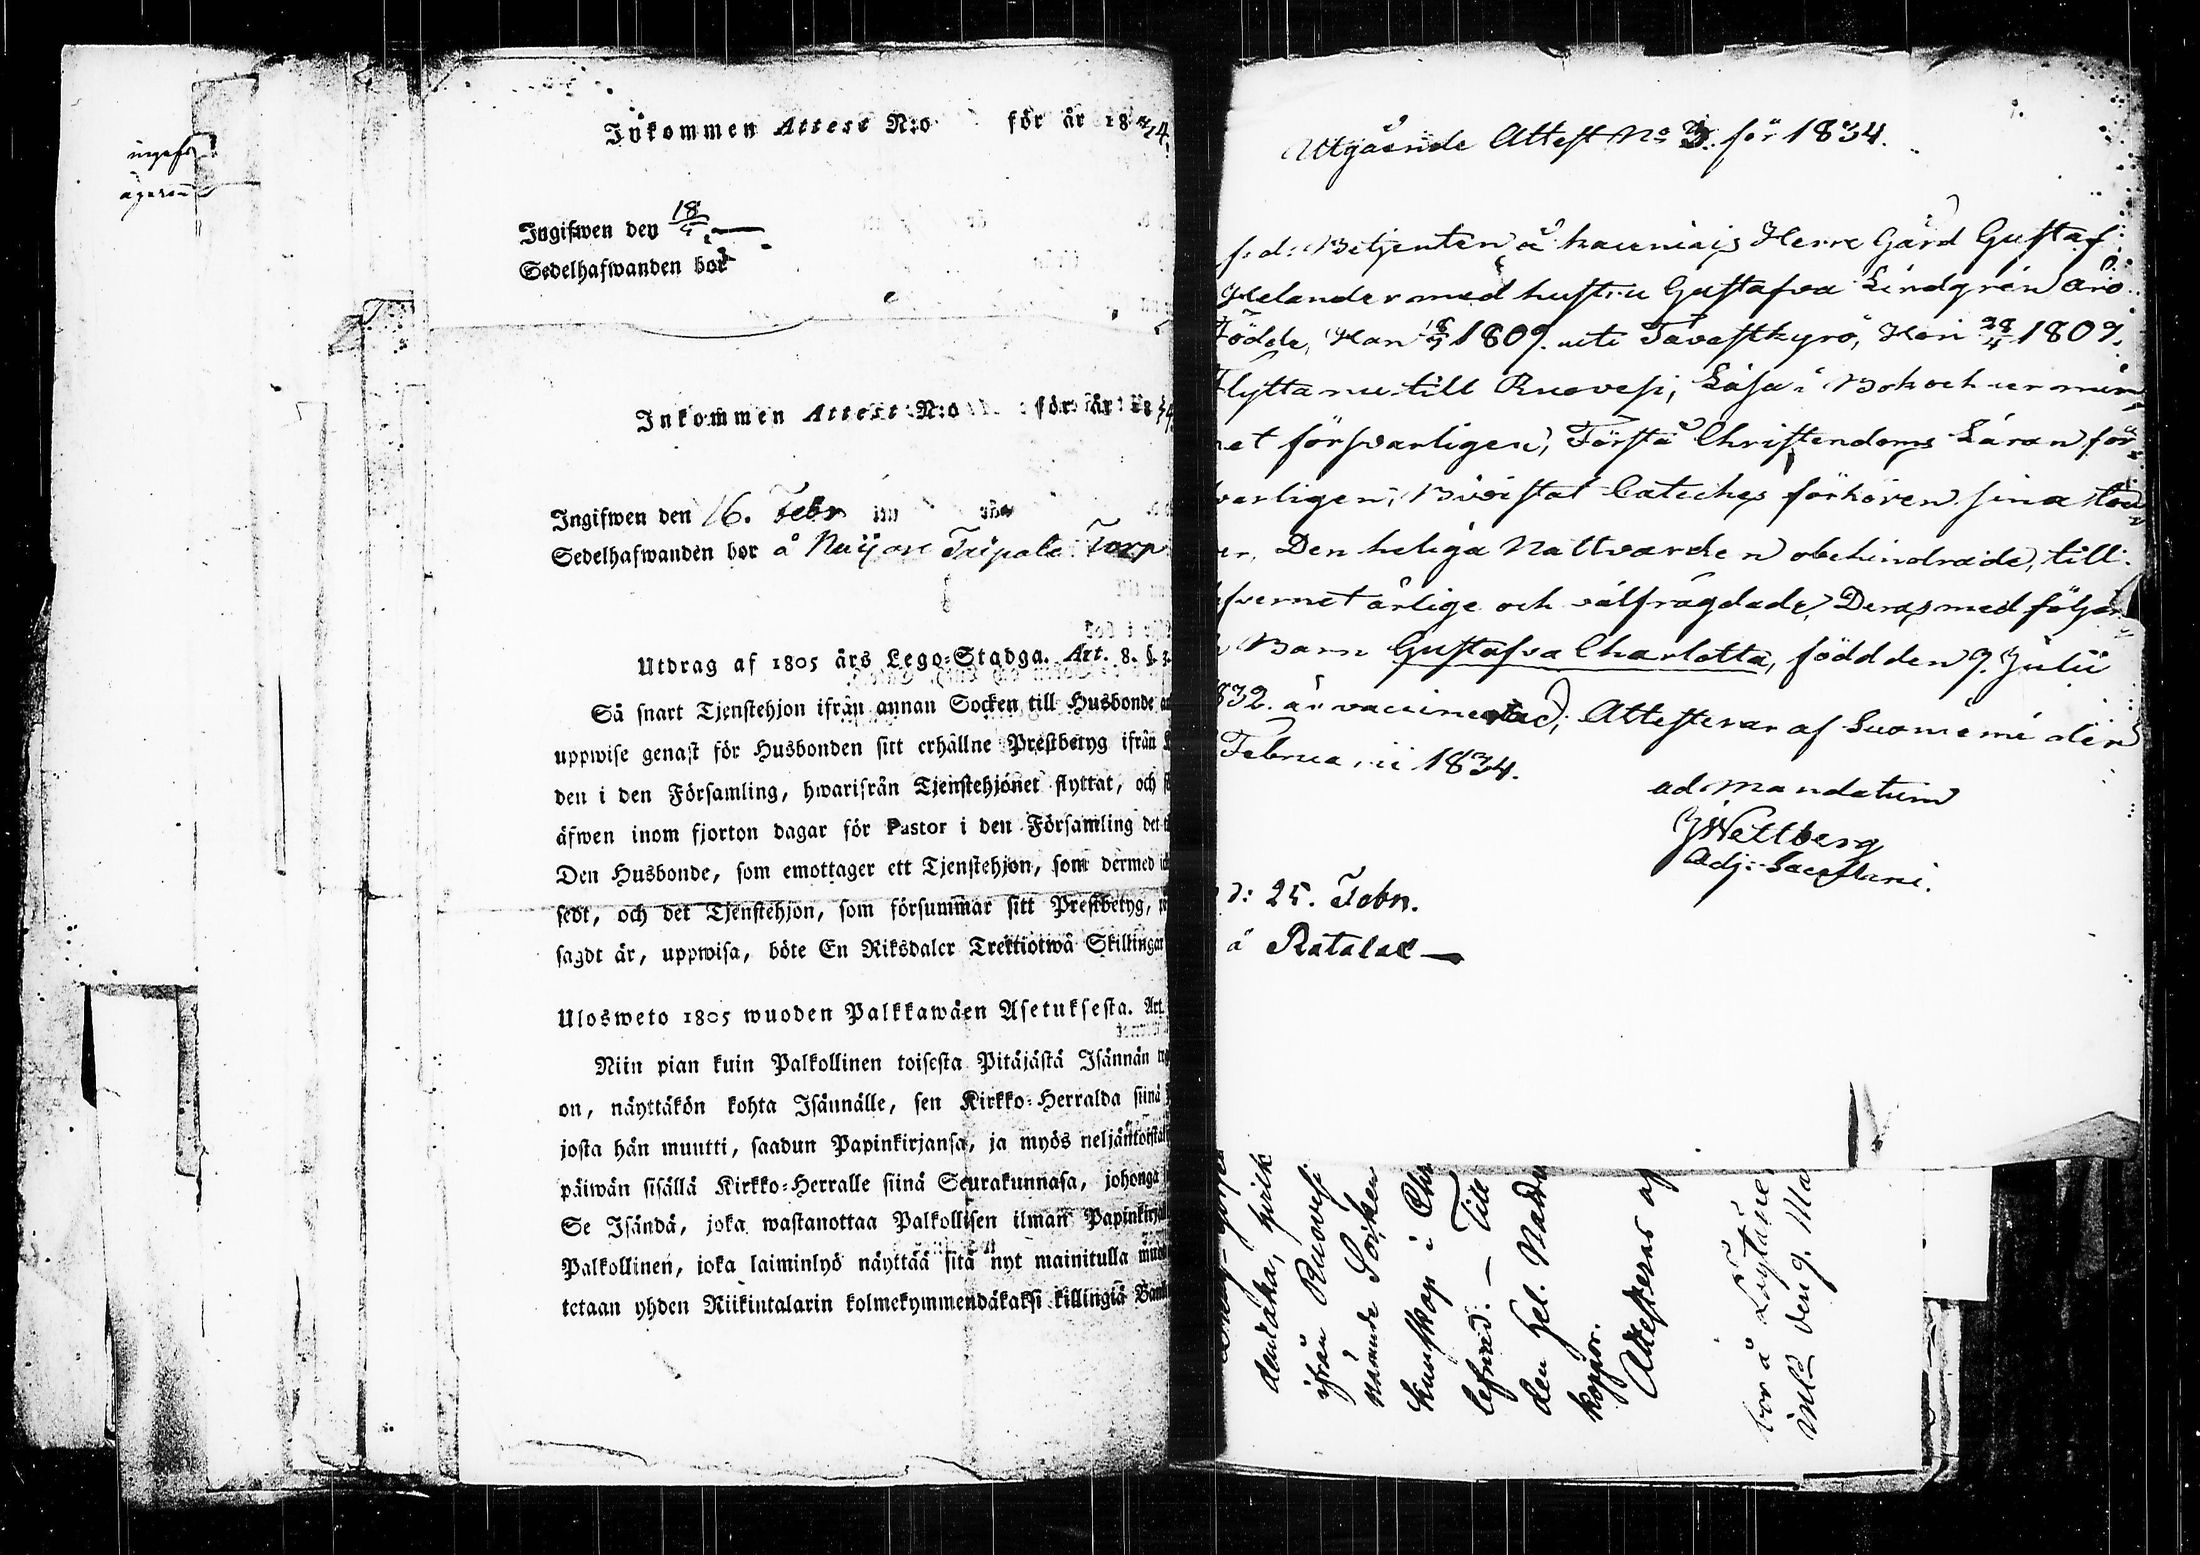 ingifv
ägaren
Inkommen Attest N:o för år 18
Ingifwen den 18/4
Sedelhafwanden bor
Inkommen Attest N:o för år 18
Ingifwen den 16. Febr
Sedelhafwanden bor å Torp
Utdrag af 1805 års Lego-Stadga. Art. 8. §. 3.
Så snart Tjenstehjon ifrån annan Socken till Husbonde
uppwise genast för Husbonden sitt erhållne Prestbetyg ifrån
den i den Församling, hwarifrån Tjenstehjonet flyttat, och
äfwen inom fjorton dagar för Pastor i den Församling det
Den Husbonde, som emottager ett Tjenstehjon, som dermed
sedt, och det Tjenstehjon, som försummar sitt Prestbetyg,
sagdt är, uppwisa, böte En Riksdaler Trettiotwå Skillingar
Ulosweto 1805 wuoden Palkkawäen Asetuksesta. Art.
Niin pian kuin Palkollinen toisesta Pitäjästä Isännän
on, näyttäkön kohta Isännälle, sen Kirkko-Herralda siinä
josta hän muutti, saadun Papinkirjansa, ja myös neljäntoista
päiwän sisällä Kirkko-Herralle siinä Seurakunnasa, johonga
Se Isändä, joka wastanottaa Palkollisen ilman Papinkirja
Palkollinen, joka laiminlyö näyttää sitä nyt mainitulla
tetaan yhden Riikintalarin kolmekymmendäkaksi killingiä
Utgående Attest No 3. för 1834.
f: d: Betjenten å Kauniais Herre Gård Gustaf
Helander med hustru Gustafva Lindgrén äro
Födde, Han 18/9 1809. uti Tavastkyrö, Hon 28/4 1809.
Flytta nu till Ruovesi, Läsa i Bok och ur min
net försvarligen, Förstå Christendoms Läran för
varligen, Bivistat Cateches förhören sina
er, Den heliga Nattvarden obehindrade, till
fvernet ärlige och välfrägdade, Deras med följan
Barn Gustafva Charlotta, född den 9. Julii
832. är vaccinerad, Attesterar af Suoniemi den
Februarii 1834.
ad mandatum
J Wettberg
Adj: Sacellani.
d: 25. Febr.
å Ratala
ifrån Ruovesi
nämnde Socken
kunskap i Chr
lefnad. — Till
den Hel. Nattv
koppor.
Attesteras af
bor å
inl: den 9. Ma